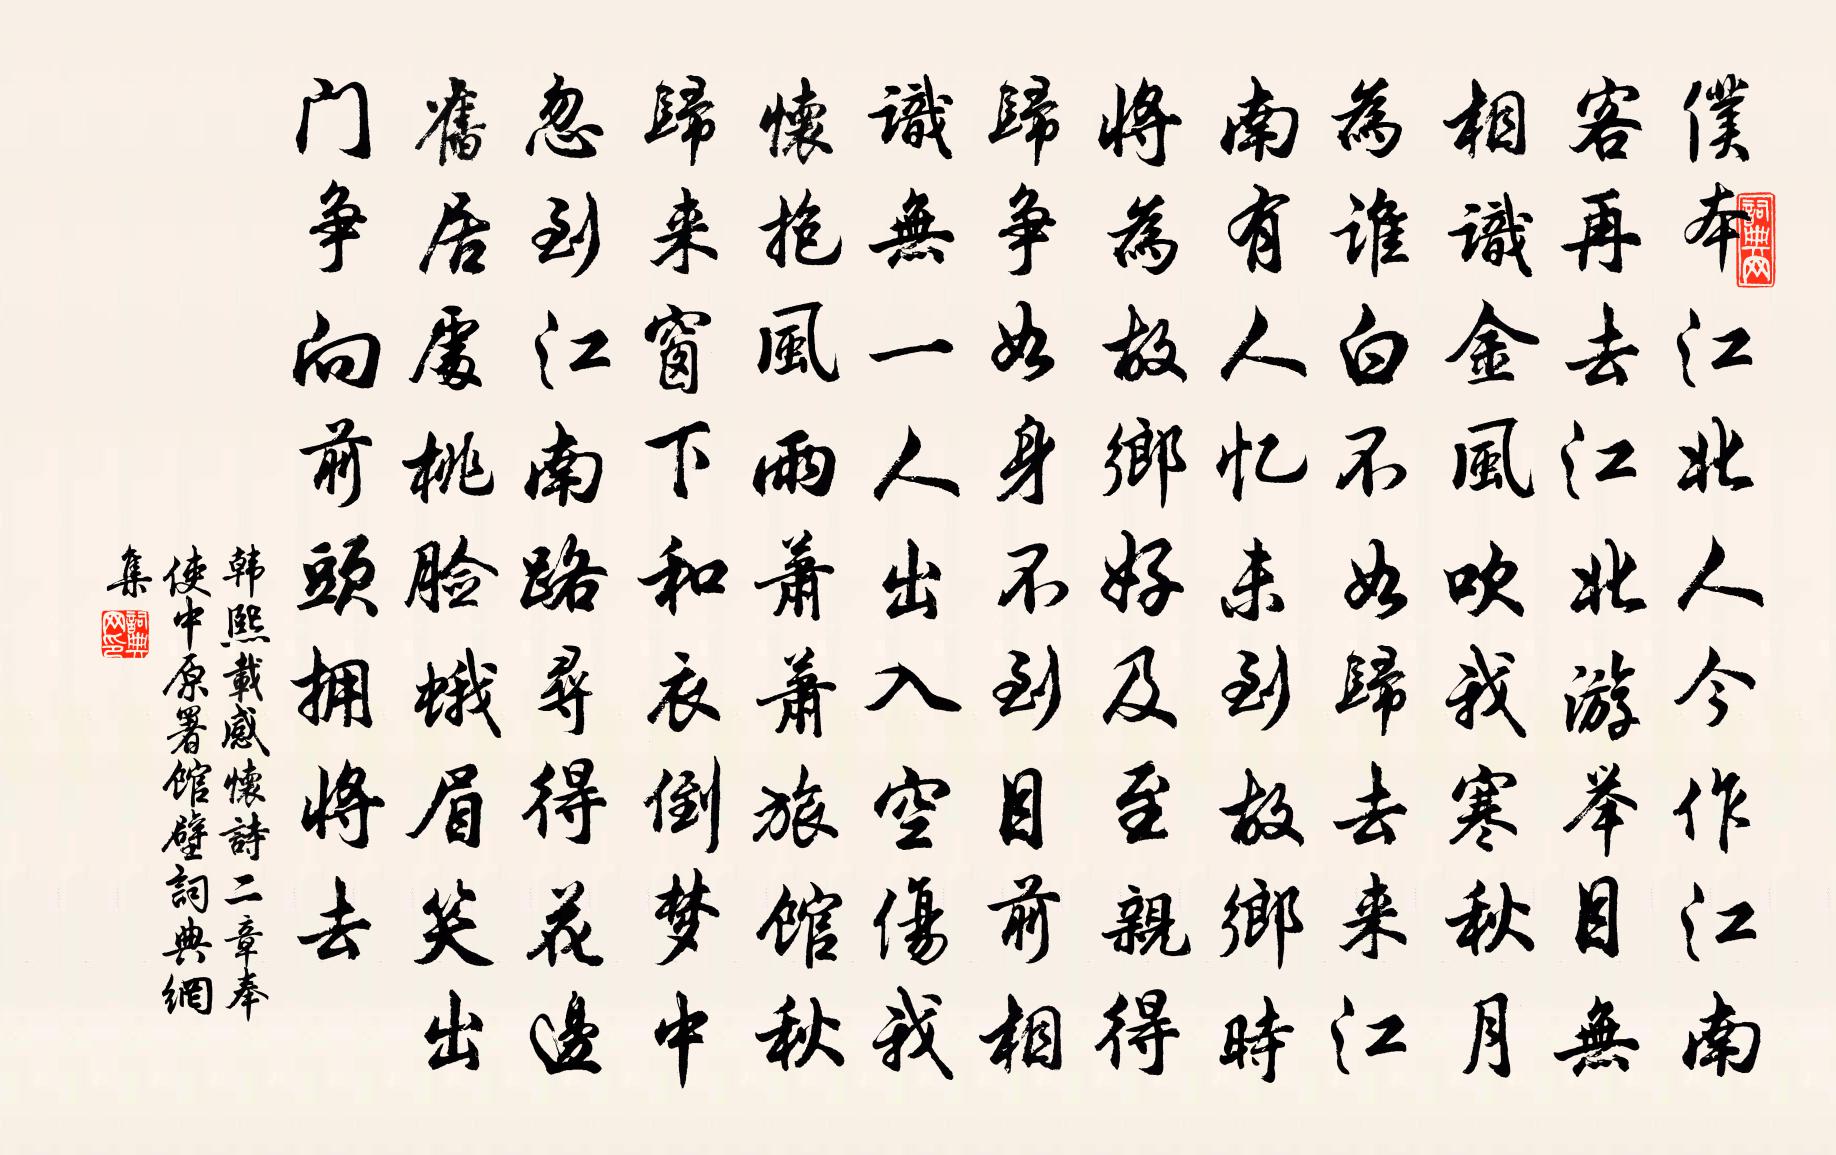 僕本江北人今作江南
客再去江北游举目無
相識金風吹我寒秋月
為谁白不如歸去来江
南有人忆未到故鄉時
将為故鄉好及至親得
歸争如身不到目前相
識無一人出入空傷我
懐抱風雨萧萧旅馆秋
歸来窗下和衣倒梦中
忽到江南路尋得花邊
舊居處桃脸蛾眉笑出
门争向前頭拥将去
韩熙載感懐詩二章奉
使中原署馆壁詞典網
集
詞典网
詞典网印